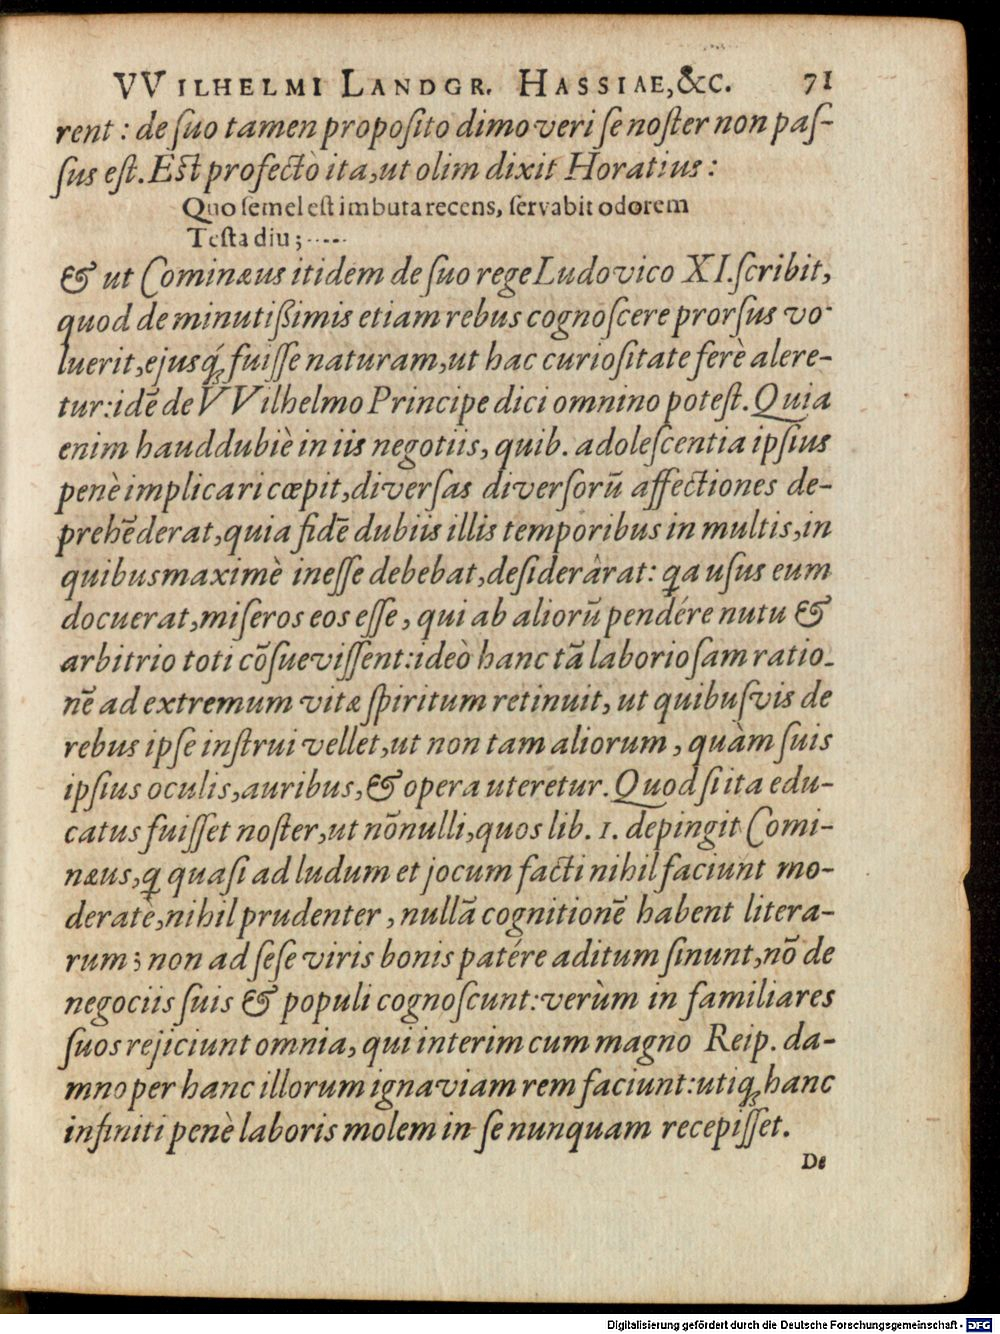 VVILHELMI LANDGR. HASSIAE, &C. 71
rent: de ſuo tamen propoſito dimoveri ſe noſter non paſ-
ſus eſt. Eſt profectò ita, ut olim dixit Horatius:
Quo ſemel eſt imbuta recens, ſervabit odorem
Teſta diu; ·····
& ut Cominæus itidem de ſuo rege Ludovico XI. ſcribit,
quod de minutißimis etiam rebus cognoſcere prorſus vo-
luerit, ejusq́; fuiſſe naturam, ut hac curioſitate ferè alere-
tur: idē de VVilhelmo Principe dici omnino poteſt. Quia
enim haud dubiè in iis negotiis, quib. adoleſcentia ipſius
penè implicari cœpit, diverſas diverſorū affectiones de-
prehēderat, quia fidē dubiis illis temporibus in multis, in
quibus maximè ineſſe debebat, deſiderârat: qa uſus eum
docuerat, miſeros eos eſſe, qui ab aliorū pendére nutu &
arbitrio toti cōſueviſſent: ideò hanc tā laborioſam ratio-
nē ad extremum vitæ ſpiritum retinuit, ut quibuſvis de
rebus ipſe inſtrui vellet, ut non tam aliorum, quàm ſuis
ipſius oculis, auribus, & opera uteretur. Quod ſi ita edu-
catus fuiſſet noſter, ut nōnulli, quos lib. 1. depingit Comi-
næus, q quaſi ad ludum et jocum facti nihil faciunt mo-
deratè, nihil prudenter, nullā cognitionē habent litera-
rum; non ad ſeſe viris bonis patére aditum ſinunt, nō de
negociis ſuis & populi cognoſcunt: verùm in familiares
ſuos rejiciunt omnia, qui interim cum magno Reip. da-
mno per hanc illorum ignaviam rem faciunt: utiq; hanc
infiniti penè laboris molem in ſe nunquam recepiſſet.
De
Digitalisierung gefördert durch die Deutsche Forschungsgemeinschaft - DFG